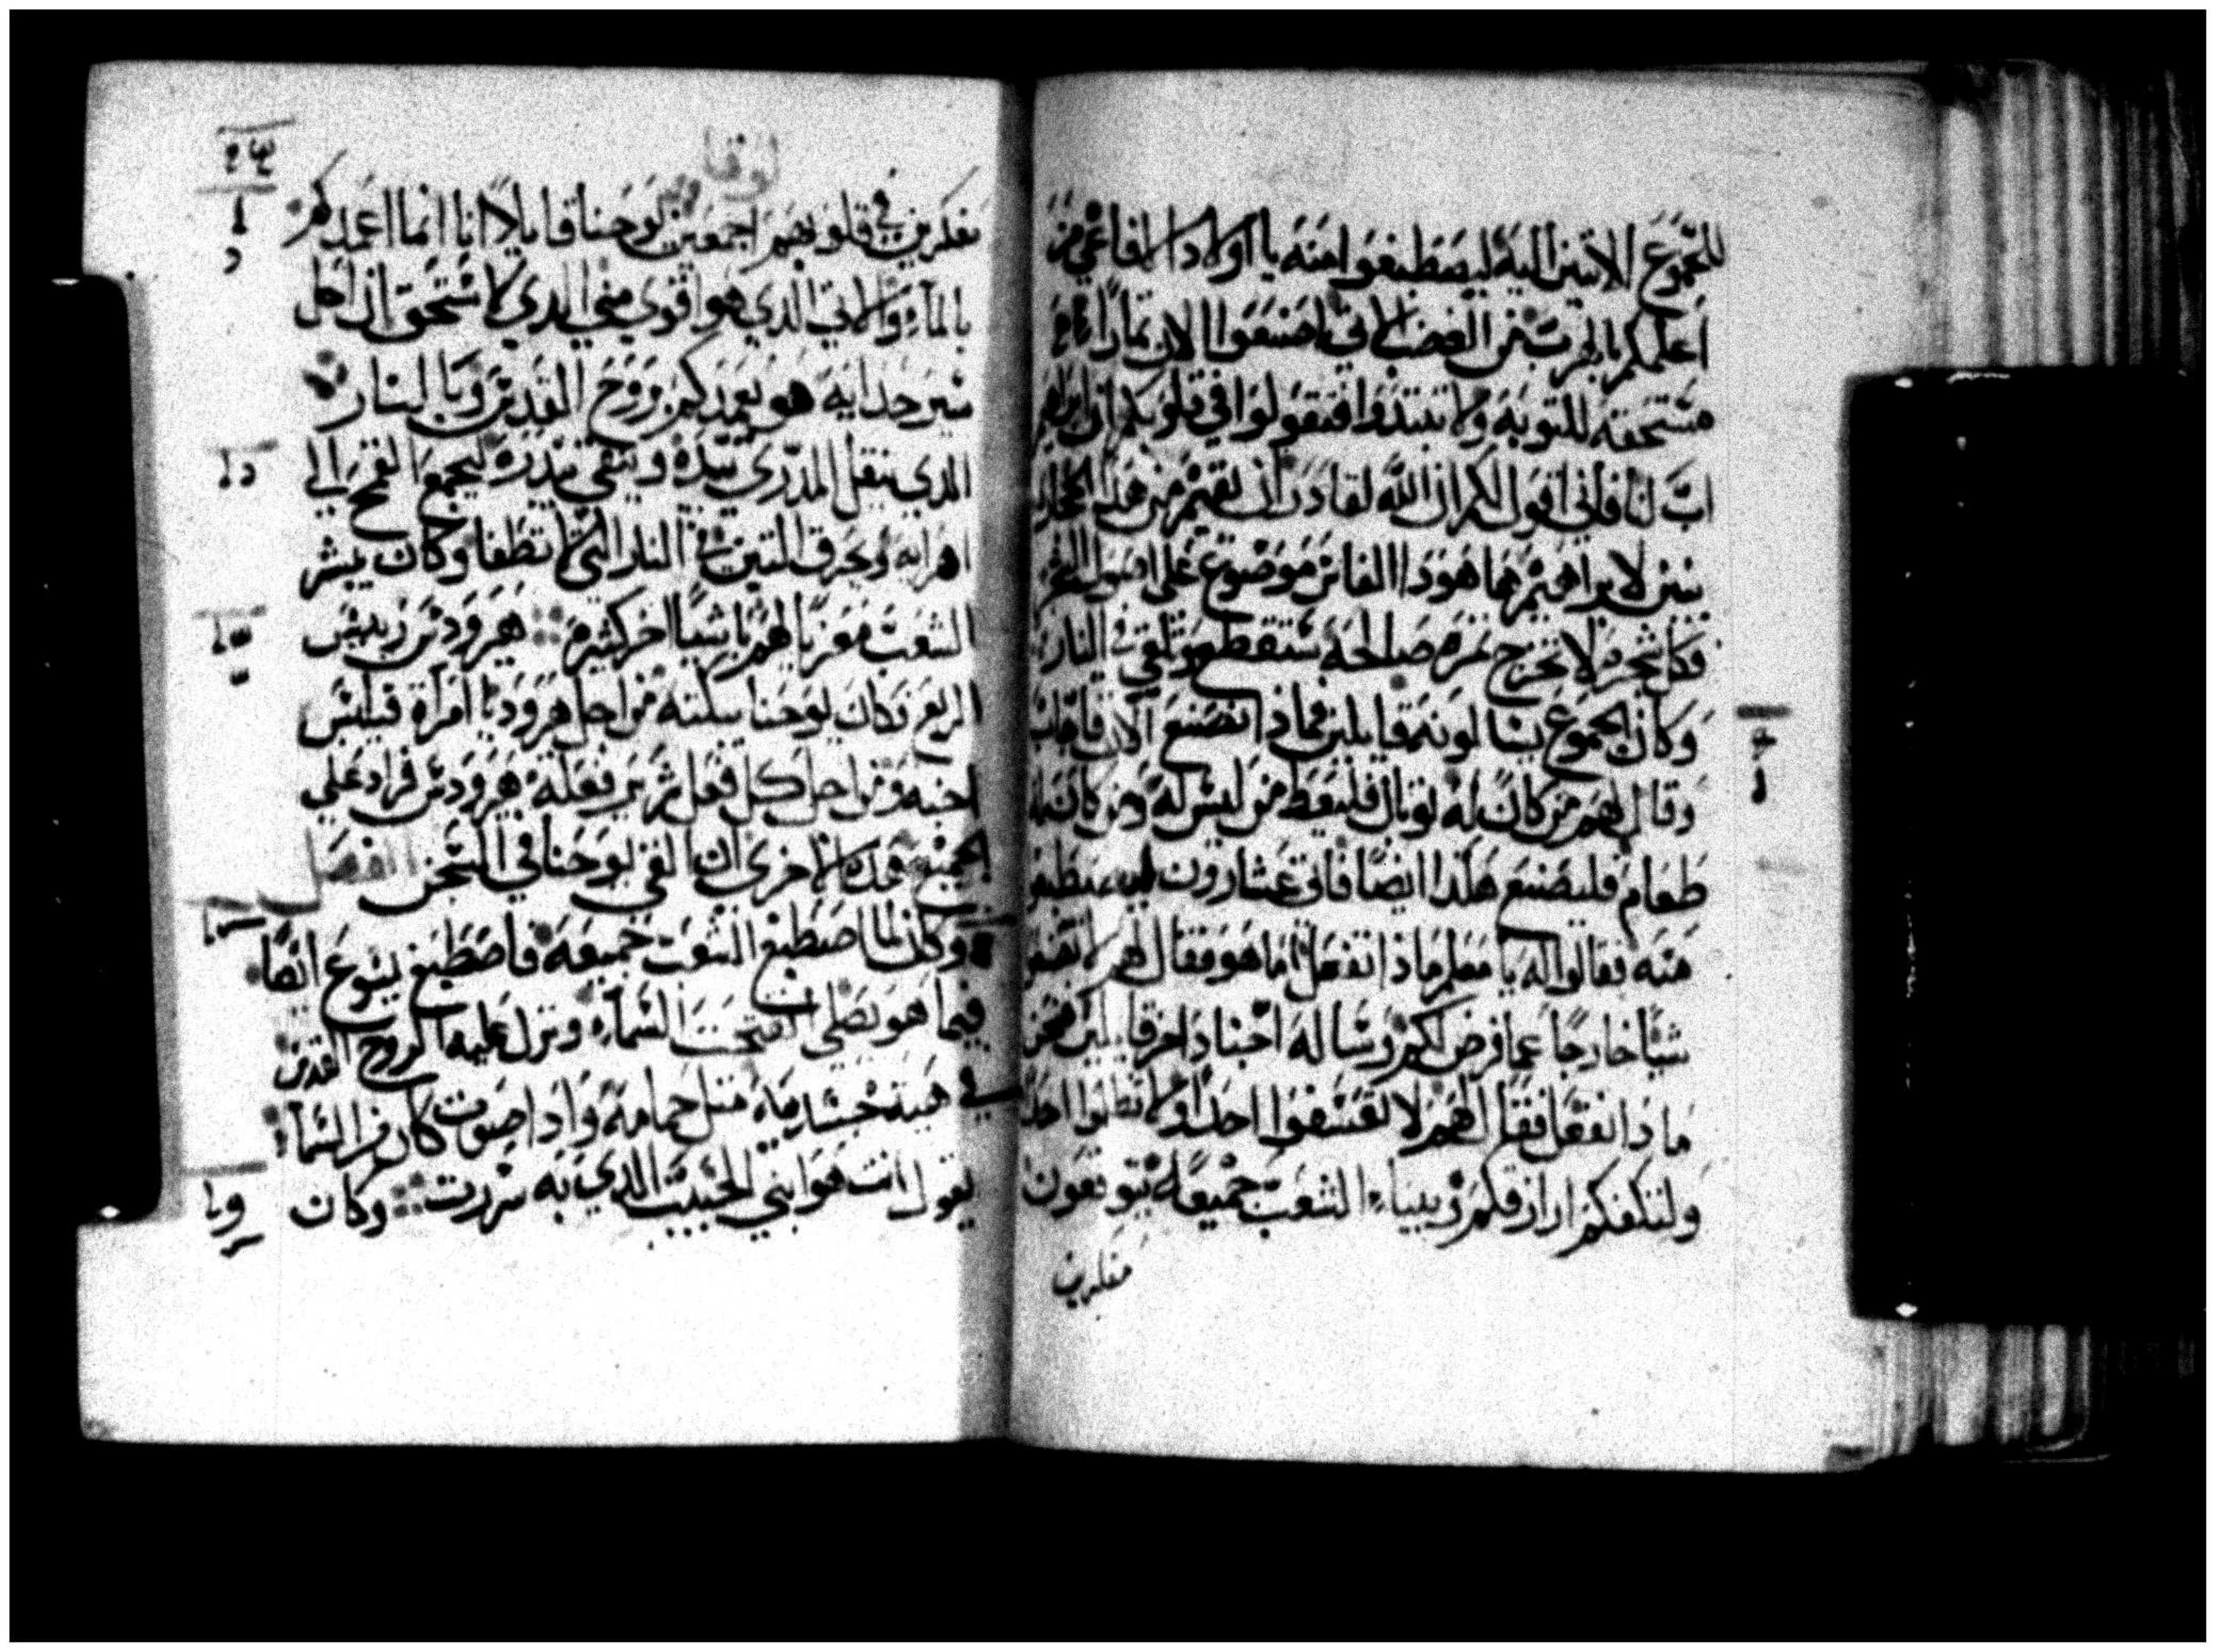 للجموع الاتيين اليه ليصطبغوا منه يا اولاد الافاعي من
اعلمكم بالهرب من الغضب الاتي اصنعوا الان ثمارا
مستحقه للتوبه ولا تبتدوا فتقولوا في قلوبكم ان ابراهيم
اب لنا فاني اقول لكم ان الله لقادر ان يقيم من هذه الحجاره
بنين لابراهيم ها هودا الفاس موضوع علي اصول الشجر
فكل شجره لا تخرج ثمره صالحه ستقطع وتلقي في النار
وكان الجموع يسالونه قايلين فماذا نصنع الان فاجاب
وقال لهم من كان له ثوبان فليعط من ليس له ومن كان له
طعام فليصنع هكذا ايضا فاتي عشارون ليصطبغوا
منه فقالوا له يا معلم ماذا نفعل اما هو فقال لهم لا تصنعوا
شيا خارجا عما فرض لكم وساله اجناد اخر قايلين نحن
ماذا نفعل فقال لهم لا تعسفوا احدا ولا تظلموا احدا
ولتكفكم ارزاقكم وبينما الشعب جميعه يتوقعون
مفكرين
لوقا
مفكرين في قلوبهم اجمعين يوحنا قايلا انا انما اعمدكم
بالماء والاتي الذي هو اقوي مني الدي لا استحق ان احل
سير حدايه هو يعمدكم بروح القدس وبالنار
الدي ينقل المدري بيده وينقي بيدره ليجمع القمح الي
اهرايه ويحرق التبن في النار التي لا تطفا وكان يبشر
الشعب معزيا لهم باشيا اخر كثيره هيرودس رييس
الربع فكان يوحنا يبكته من اجل هيروديا امراة فيلبس
اخيه ومن اجل كل فعل شرير فعله هيرودس فزاد علي
الجميع هذه الاخري ان القي يوحنا في السجن الفصل
وكان لما اصطبغ الشعب جميعه فاصطبغ يسوع ايضا
فيما هو يصلي انفتحت السماء ونزل عليه الروح القدس
في هيية جسدميه مثل حمامه واذا صوت كان من السماء
يقول انت هو ابني الحبيب الذي به سررت وكان